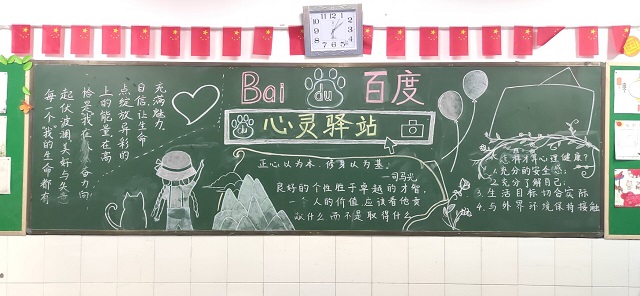 Bai du 百度
du 心灵驿站
每一个我的生命都有
起伏波澜美好与失意
恰是我在人 力向
上的能量在高
点绽放异彩的
自信,让生命
充满魅力
正心以为本,修身以为基。
——司马光
良好的个性胜于卓越的才智。
一个人的价值应该看他贡
献什么而不是取得什么
怎样才 心理健康?
1.充分的安全感;
2.充分了解自己;
3.生活目标切合实际
4.与外界环境保持接触